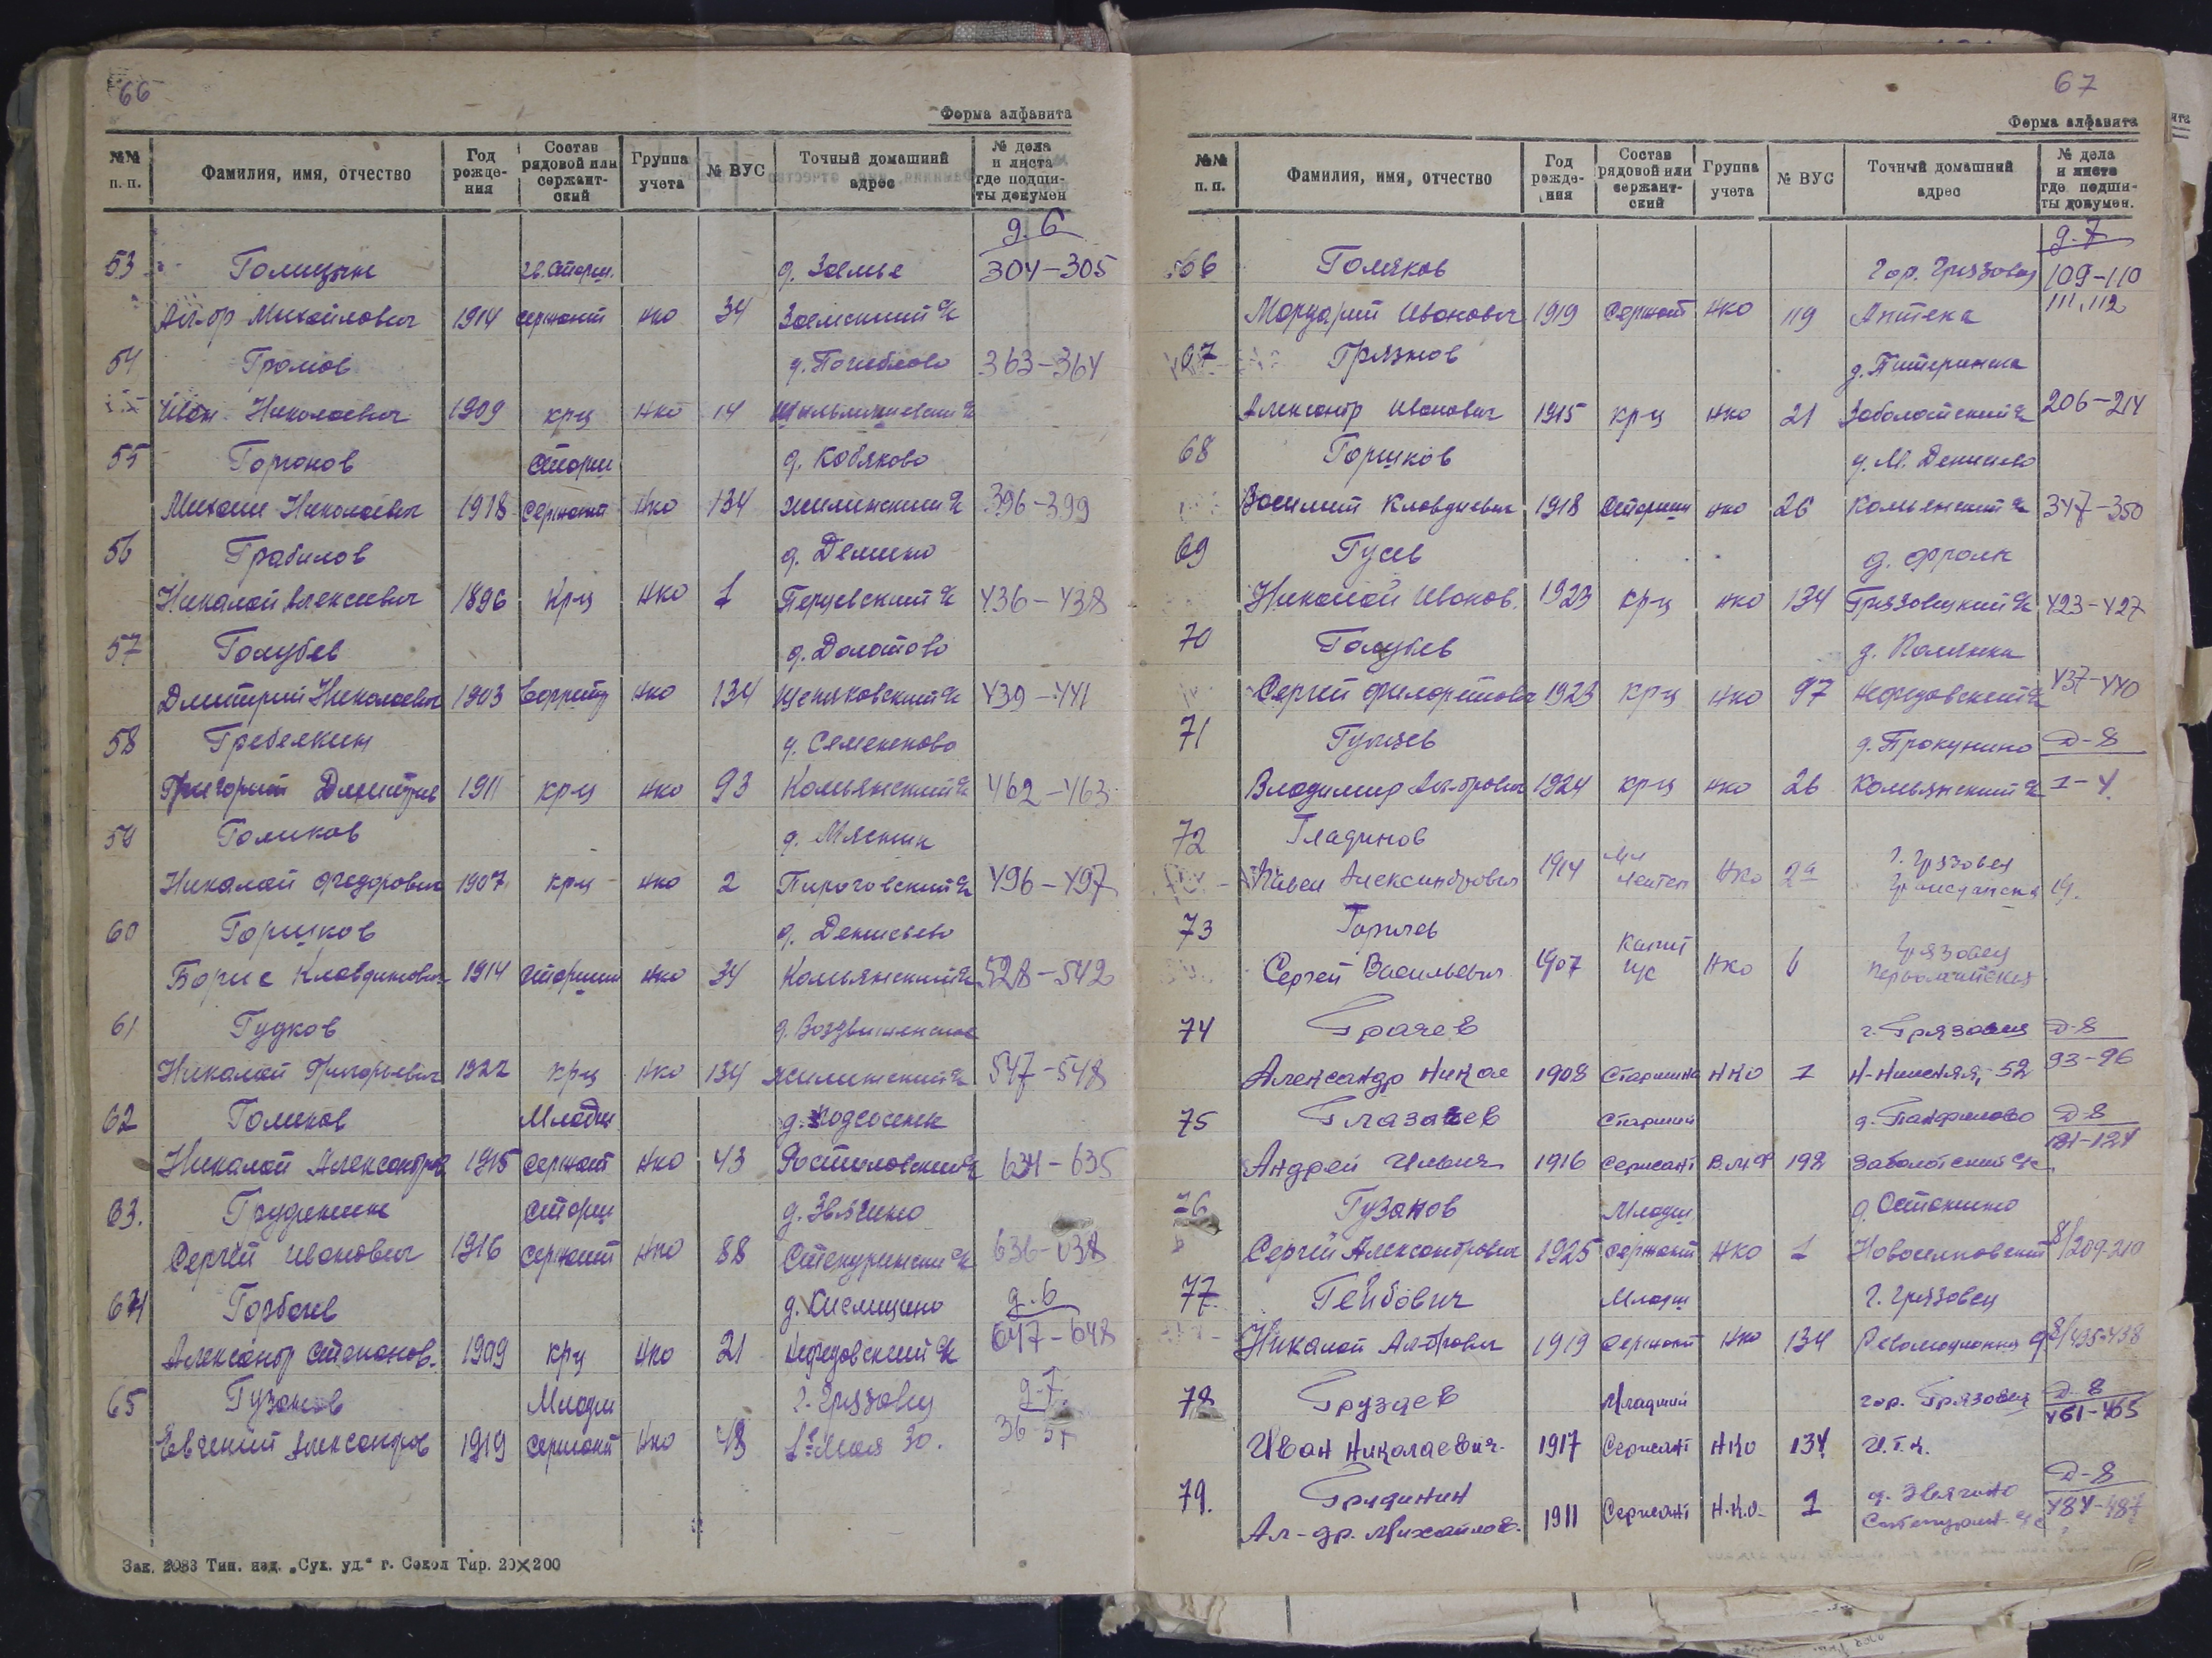 66
Форма алфавита
№№ п. п. Фамилия, имя, отчество Год рожде-ния Состав рядовой или сержант-ский Группа учета № ВУС Точный домашний адрес № дела и листа где подши-ты докумен
д. 6
53 Голицын гв. Старш. д. Заемье 304-305
Ал-др Михайлович 1914 сержант нко 34 Заемский с/с
54 Громов 363-364
Иван Николаевич 1909 крц нко 14
55 Горюнов Старш д. Кобяково
Михаил Николаевич 1918 Сержант нко 134 Жилинский с/с 396-399
56 Грабилов д. Демино
Николай Алексеевич 1896 крц нко 1 Перцевский с/с 436-438
57 Голубев д. Долотово
Дмитрий Николаевич 1903 Ефрейтр нко 134 439-441
58 Гребелкин д. Семенково
Григорий Дмитрие 1911 крц нко 93 Комьянский с/с 462-463
59 Голиков д. Мясник
Николай Федорович 1907 крц нко 2 Пироговский с/с 496-497
60 Горшков д. Денисьево
Борис Клавдиевич 1914 Старшин нко 34 Комьянский с/с 528-542
61 Гудков д. Воздвиженское
Николай Григорьевич 1922 крц нко 134 Жилинский с/с 547-548
62 Голиков Младш д. Подсосенк
Николай Александров 1915 сержант нко 43 Ростиловский с/с 634-635
63. Грудинин Старш д. Звягино
Сергей Иванович 1916 сержант нко 88 Степуринский с/с 636-638
64 Горбачев д. Кислицино д. 6
Александр Степанов. 1909 крц нко 21 Нефедовский с/с 647-648
65 Гузанов Младш г. Грязовец д-7.
Евгений Александров 1919 сержант нко 43 1е Мая 30. 36-51
Зак. 2083 Тип. изд. „Сух. уд.“ г. Сокол Тир. 20×200
67
Форма алфавита
№№ п. п. Фамилия, имя, отчество Год рожде-ния Состав рядовой или сержант-ский Группа учета № ВУС Точный домашний адрес № дела и листа где подши-ты докумен.
д. 7
66 Голяков Гор. Грязовец 109-110
Мордарий Иванович 1919 Сержант нко 119 Аптека 111, 112
67 Грязнов д. Питеринка
Александр Иванович 1915 крц нко 21 Заболотский с/с 206-214
68 Горшков д. М. Денисьево
Василий Клавдиевич 1918 Старшин нко 26 Комьянский с/с 347-350
69 Гусев д. Фролк
Николай Иванов. 1923 крц нко 134 Грязовецкий с/с 423-427
70 Голубев д. Полянка
Сергей Филаретович 1923 крц нко 97 Нефедовский с/с 437-440
71 Гульцев д. Прокунино Д-8
Владимир Ал-дрович 1924 крц нко 26 Комьянский с/с 1-4.
72 Гладинов
Павел Александрович 1914 Мл Лейтен нко 2а г. Грязовец Гражданская 19.
73 Горичев
Сергей Васильевич 1907 Капит нко 6 Грязовец Первомайская
74 Грачев г. Грязовец Д-8
Александр Никол 1908 Старшина НКО 1 Н-Нижняя, 52 93-96
75 Глазачев Старший д. Панфилово Д-8
Андрей Ильич 1916 Сержант В.М.Ф 192 Заболотский с/с 121-124
76 Гузанов Младш д. Останино
Сергей Александрович 1925 сержант нко 1 Новоселковский 8/209-210
77 Гейбович Младш г. Грязовец
Николай Ал-дрович 1919 сержант нко 134 8/435-438
78 Груздев Младший гор. Грязовец Д-8
Иван Николаевич. 1917 Сержант НКО 134 451-455
79. Грудинин д. Звягино Д-8
Ал-др. Михайлов. 1911 Сержант Н.К.О. 1 Степурин. с/с 484-487